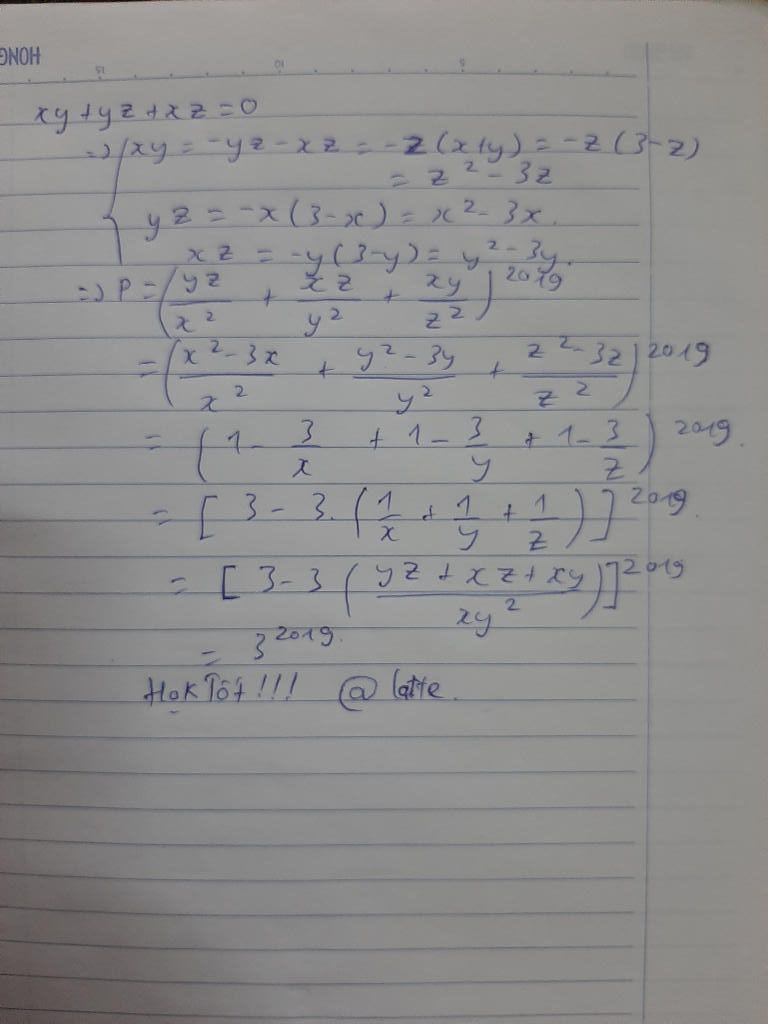 HONG
15 10 5
xy + yz + xz = 0
=> { xy = -yz - xz = -z (x+y) = -z (3-z)
= z² - 3z
yz = -x (3-x) = x² - 3x.
xz = -y (3-y) = y² - 3y.
=> P = (yz/x² + xz/y² + xy/z²)^2019
= (x²-3x/x² + y²-3y/y² + z²-3z/z²)^2019
= (1 - 3/x + 1 - 3/y + 1 - 3/z)^2019.
= [3 - 3. (1/x + 1/y + 1/z)]^2019.
= [3 - 3 (yz + xz + xy/xyz)]^2019
= 3^2019.
Họk Tốt!!! @ latte.